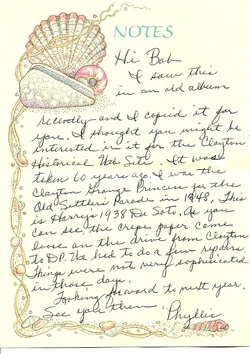 NOTES
Hi Bob
I saw this
in an old album
recently and I copied it for
you. I thought you might be
interested in it for the Clayton
Historical Web Site. It was
taken 60 years ago. I was the
Clayton Grange Princess for the
Old Settler's Parade in 1948. This
is Harry's 1938 De Soto. As you
can see the crepe paper came
loose on the drive from Clayton
to DP. We had to do a few repairs.
Things were not very sophisticated
in those days.
Looking forward to next year.
See you then. Phyllis